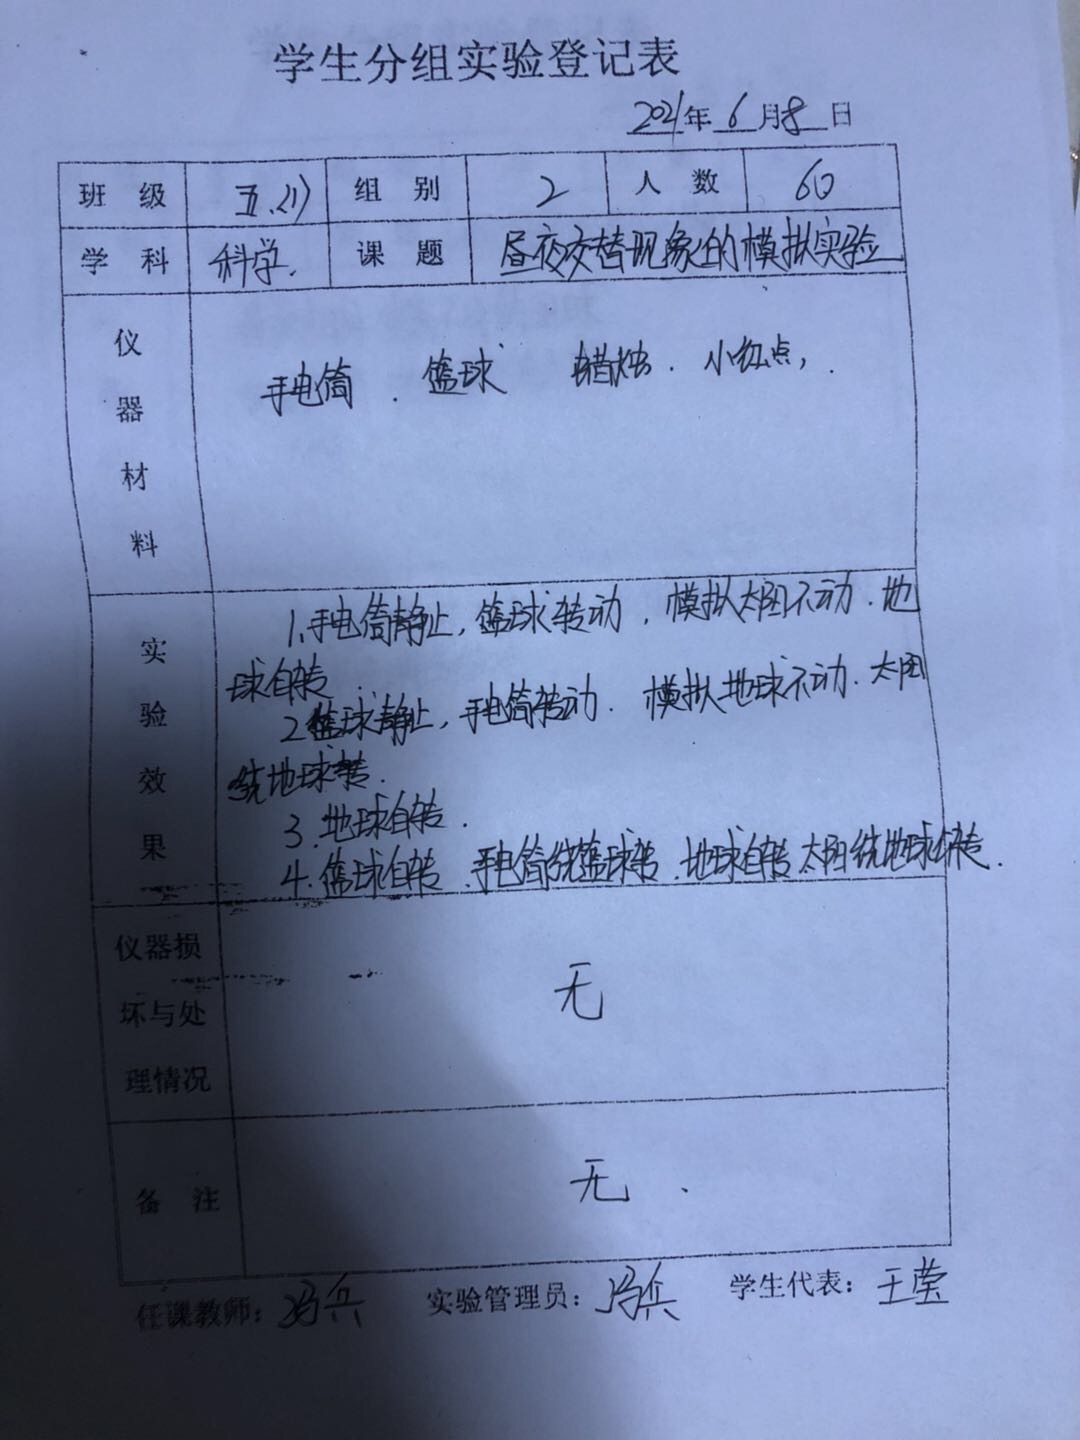 学生分组实验登记表
2021年6月8日
班级 五.(1) 组别 2 人数 60
学科 科学. 课题 昼夜交替现象的模拟实验
仪器材料
手电筒. 篮球 蜡烛. 小红点,.
实验效果
1.手电筒静止,篮球转动,模拟太阳不动.地
球自转
2篮球静止,手电筒转动.模拟地球不动.太阳
绕地球转.
3.地球自转.
4.篮球自转.手电筒绕篮球转.地球自转太阳绕地球转.
仪器损
坏与处
理情况
无
备注 无.
任课教师:冯兵 实验管理员:冯兵 学生代表:王莹